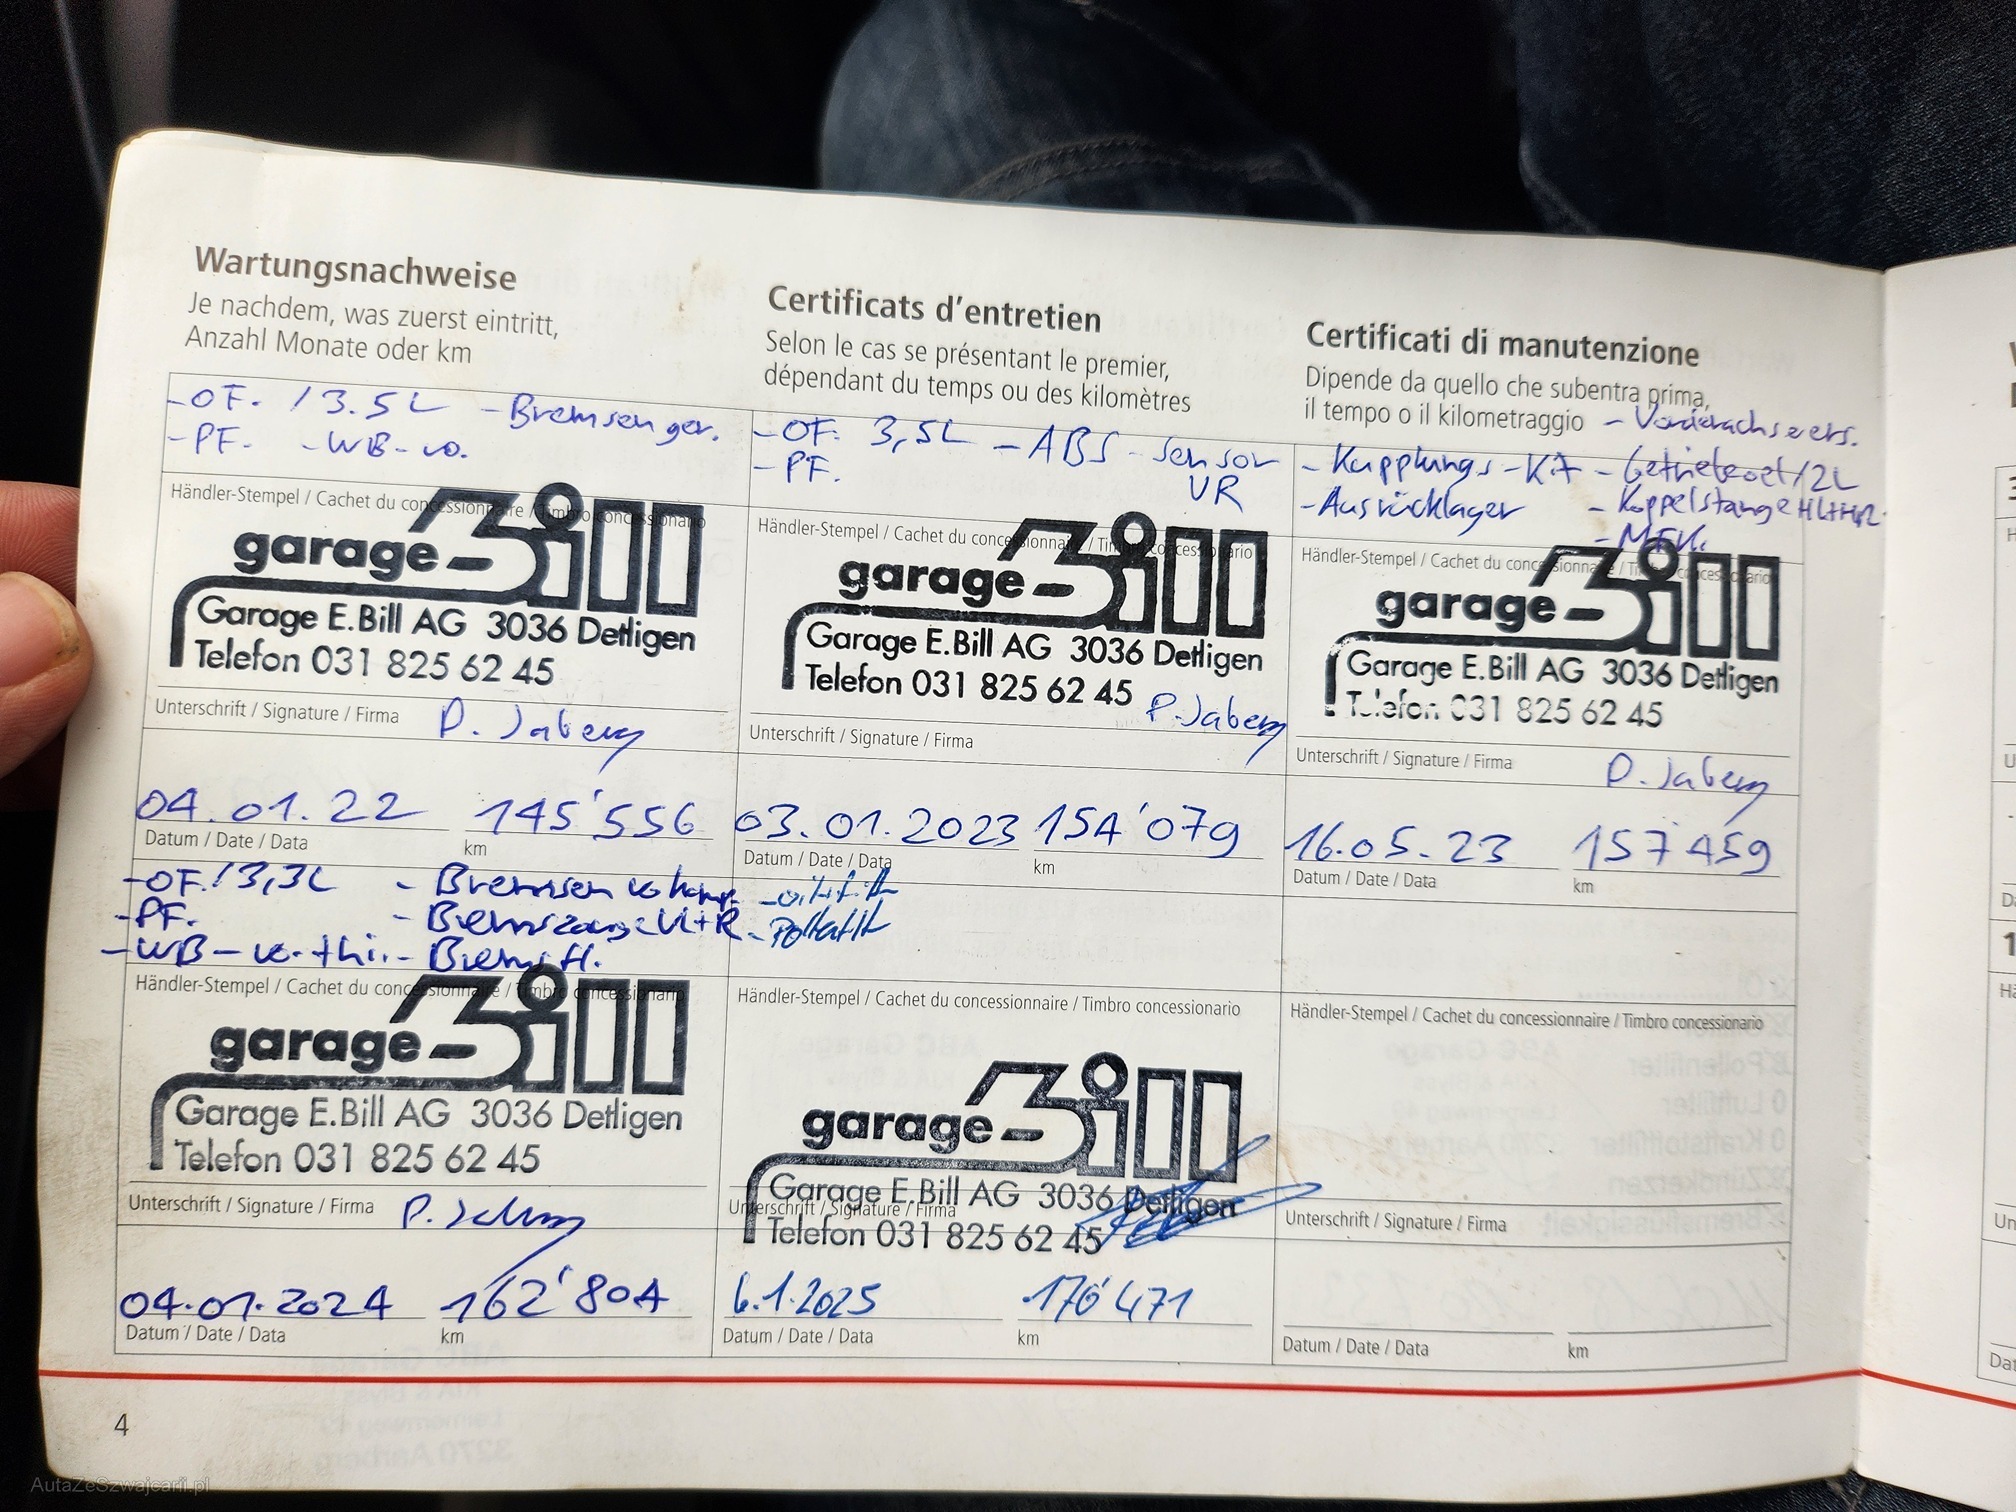 Wartungsnachweise
Je nachdem, was zuerst eintritt,
Anzahl Monate oder km
Certificats d'entretien
Selon le cas se présentant le premier,
dépendant du temps ou des kilomètres
Certificati di manutenzione
Dipende da quello che subentra prima,
il tempo o il kilometraggio
- OF. / 3.5L - Bremsen ger.
- PF. - WB - vo.
Händler-Stempel / Cachet du concessionnaire / Timbro concessionario
garage Bill
Garage E.Bill AG 3036 Detligen
Telefon 031 825 62 45
Unterschrift / Signature / Firma P. Jaberg
04.01.22 145'556
Datum / Date / Data km
- OF. 3,5L - ABS - Sensor
- PF. VR
Händler-Stempel / Cachet du concessionnaire / Timbro concessionario
garage Bill
Garage E.Bill AG 3036 Detligen
Telefon 031 825 62 45
P. Jaberg
Unterschrift / Signature / Firma
03.01.2023 154'079
Datum / Date / Data km
- Vorderachsvers.
- Kupplungs-Kit - Getriebeoel / 2L
- Ausrücklager - Koppelstange HL+HR
- MFK.
Händler-Stempel / Cachet du concessionnaire / Timbro concessionario
garage Bill
Garage E.Bill AG 3036 Detligen
Telefon 031 825 62 45
Unterschrift / Signature / Firma
P. Jaberg
16.05.23 157'459
Datum / Date / Data km
- OF. / 3,3L - Bremsen vo
- PF. - Bremszange VL+R
- WB - vo. + hi. - Bremsfl.
Händler-Stempel / Cachet du concessionnaire / Timbro concessionario
garage Bill
Garage E.Bill AG 3036 Detligen
Telefon 031 825 62 45
Unterschrift / Signature / Firma P. Jaberg
04.01.2024 162'804
Datum / Date / Data km
Händler-Stempel / Cachet du concessionnaire / Timbro concessionario
garage Bill
Garage E.Bill AG 3036 Detligen
Unterschrift / Signature / Firma
Telefon 031 825 62 45
6.1.2025 170'471
Datum / Date / Data km
Händler-Stempel / Cachet du concessionnaire / Timbro concessionario
Unterschrift / Signature / Firma
Datum / Date / Data km
4
AutaZeSzwajcarii.pl